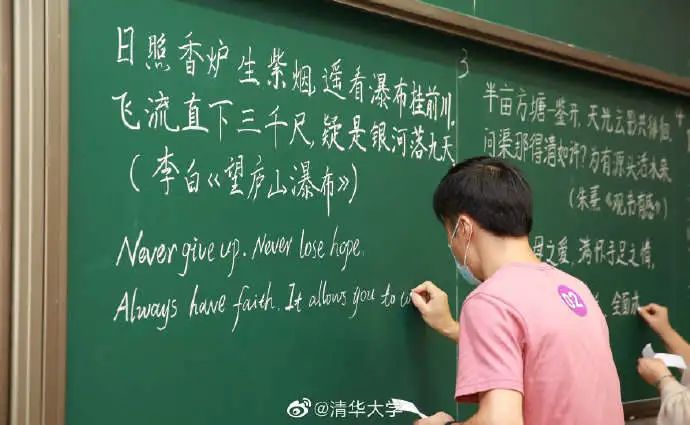 日照香炉生紫烟,遥看瀑布挂前川。
飞流直下三千尺,疑是银河落九天
(李白《望庐山瀑布》)
Never give up. Never lose hope.
Always have faith. It allows you to
3
半亩方塘一鉴开,天光云影共徘徊,
问渠那得清如许?为有源头活水来
(朱熹《观书有感》)
母之爱,满怀手足之情,
全面
4
02
@清华大学